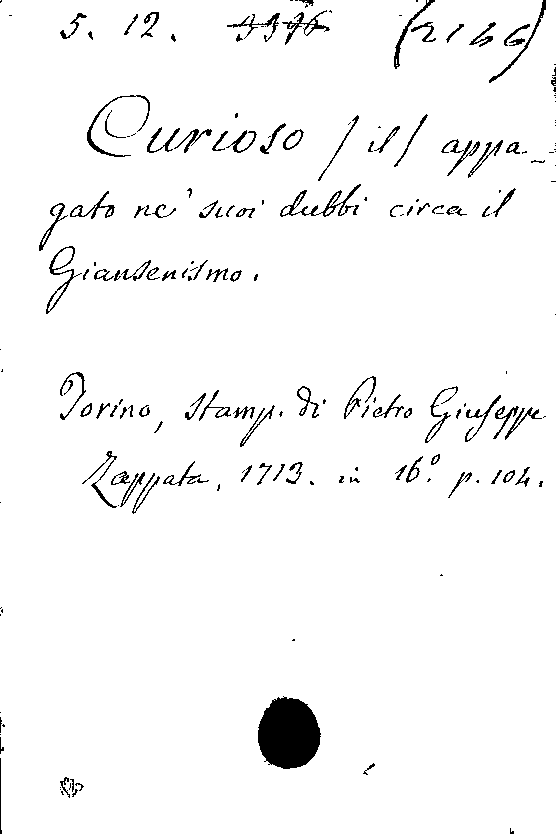 5. 12. 3396 (2166)
Curioso / il / appa-
gato ne' suoi dubbi circa il
Giansenismo.
Torino, stamp. di Pietro Giuseppe
Zappata, 1713. in 16.º p. 104.